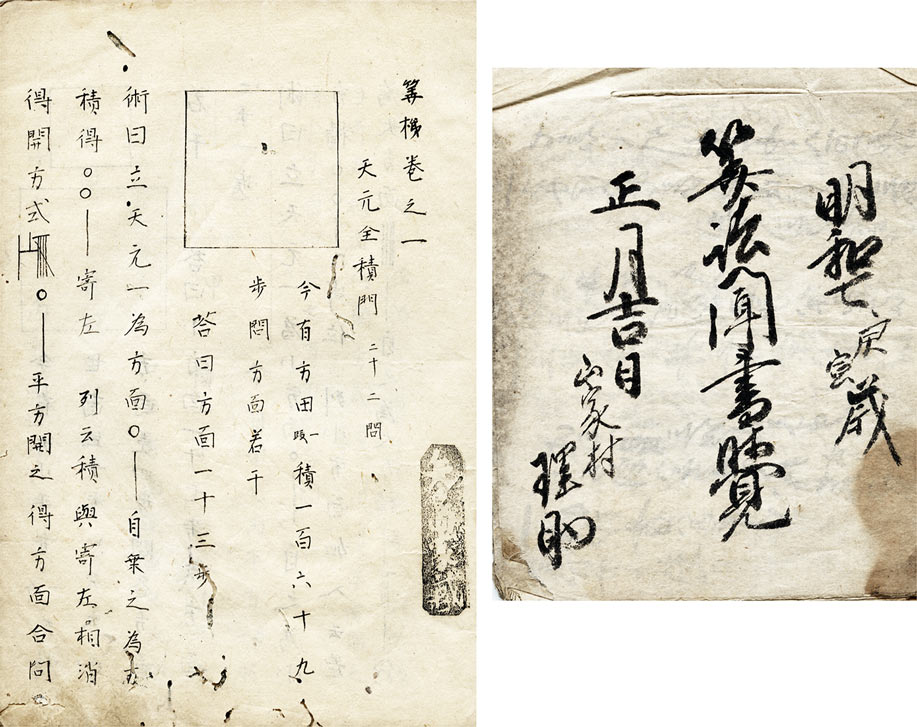 筭梯巻之一
天元全積門 二十二問
今有方田一段積一百六十九
步問方面若干
荅曰方面一十三步
術曰立天元一為方面〇｜自乗之為
積得〇〇｜寄左 列云積與寄左相消
得開方式〇｜平方開之得方面合問
明和七庚寅歳
筭法聞書覺
正月吉日
山家村
理助